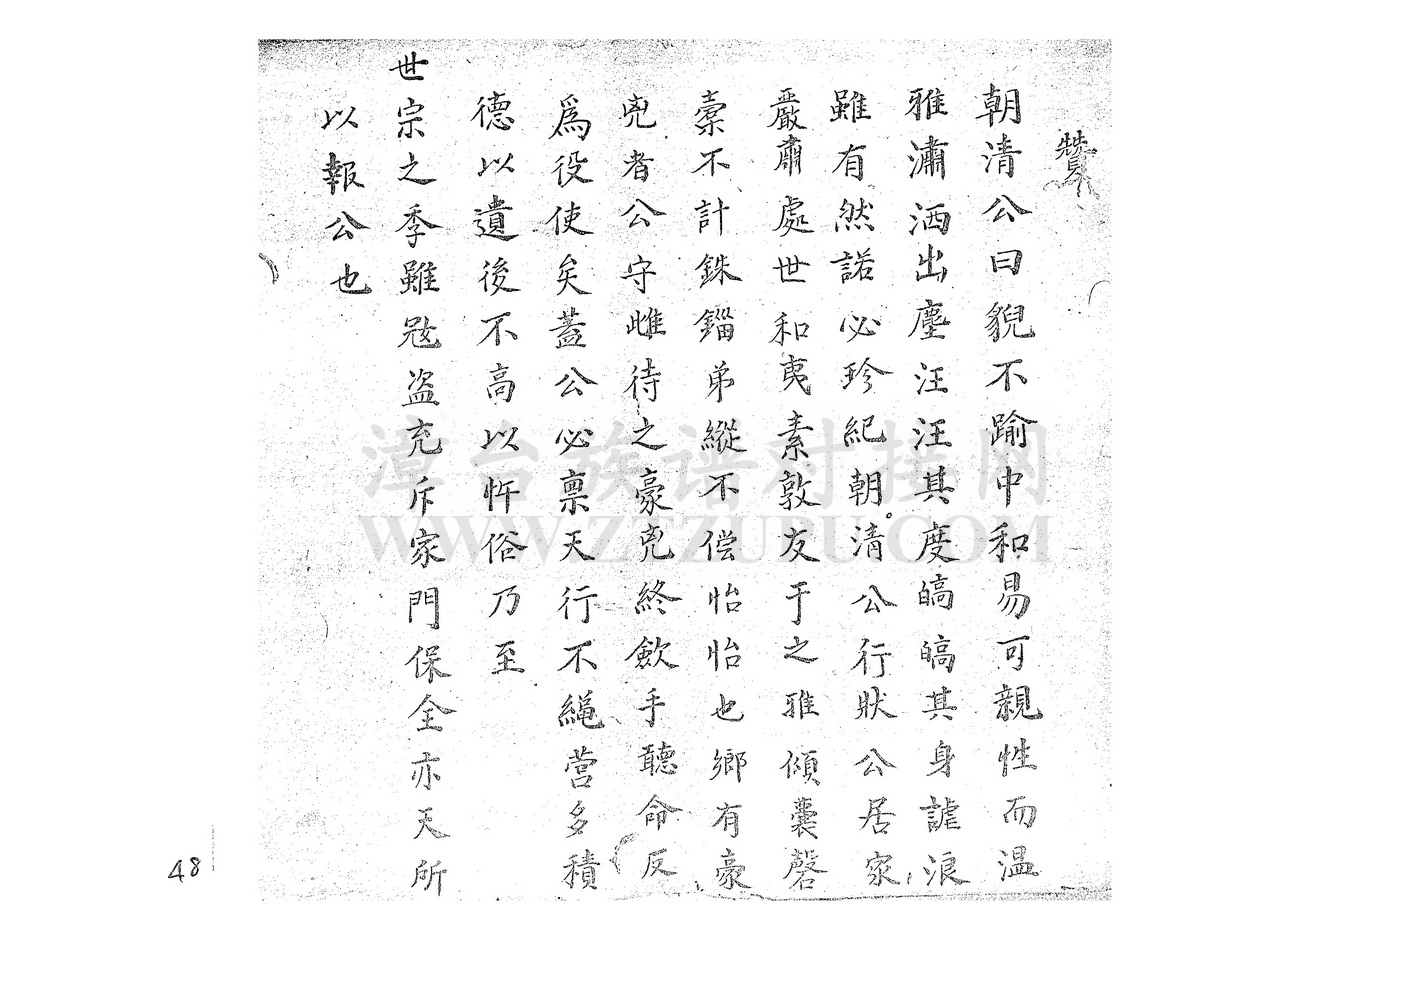 贊
朝清公曰貌不踰中和易可親性而温
雅瀟洒出塵汪汪其度皜皜其身謔浪
雖有然諾必珍紀朝。清公行狀公居家
嚴肅處世和夷素敦友于之雅傾囊罄
橐不計銖錙弟縱不偿怡怡也鄉有豪
兇者公守雌待之豪兇終歛手聽命反
爲役使矣蓋公必禀天行不繩营多積
德以遺後不高以忤俗乃至
世宗之季雖冦盗充斥家門保全亦天所
以報公也
漳台族谱对接网
WWW.ZTZUPU.COM
48